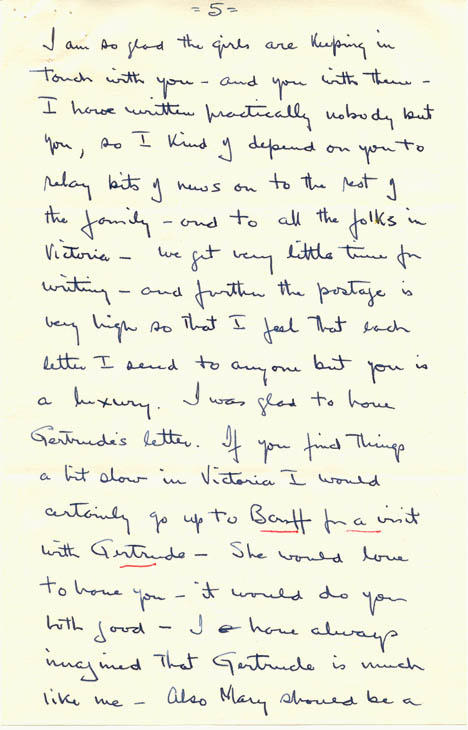 =5=
I am so glad the girls are keeping in
touch with you - and you with them -
I have written practically nobody but
you, so I kind of depend on you to
relay bits of news on to the rest of
the family - and to all the folks in
Victoria - We get very little time for
writing - and further the postage is
very high so that I feel that each
letter I send to anyone but you is
a luxury. I was glad to have
Gertrude's letter. If you find things
a bit slow in Victoria I would
certainly go up to Banff for a visit
with Gertrude - She would love
to have you - it would do you
both good - I have always
imagined that Gertrude is much
like me - Also Mary should be a